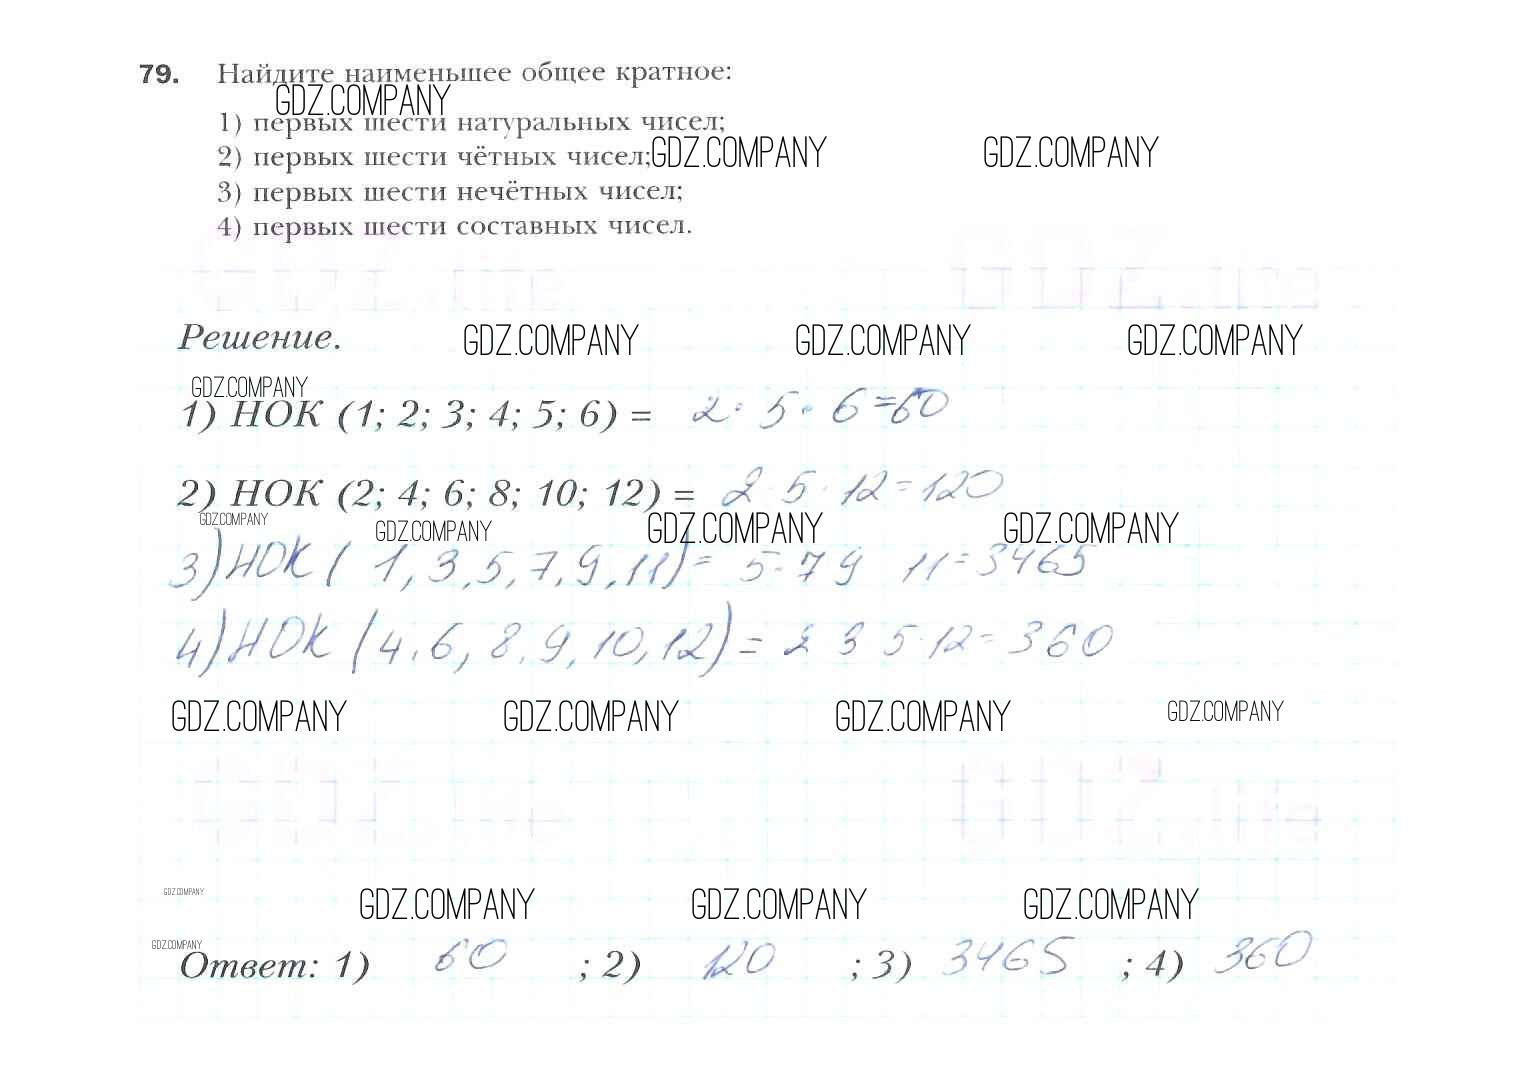 79. Найдите наименьшее общее кратное:
GDZ.COMPANY
1) первых шести натуральных чисел;
2) первых шести чётных чисел; GDZ.COMPANY GDZ.COMPANY
3) первых шести нечётных чисел;
4) первых шести составных чисел.
Решение. GDZ.COMPANY GDZ.COMPANY GDZ.COMPANY
GDZ.COMPANY
1) НОК (1; 2; 3; 4; 5; 6) = 2 · 5 · 6 = 60
2) НОК (2; 4; 6; 8; 10; 12) = 2 · 5 · 12 = 120
GDZ.COMPANY GDZ.COMPANY GDZ.COMPANY GDZ.COMPANY
3) НОК (1, 3, 5, 7, 9, 11) = 5 · 7 9 11 = 3465
4) НОК (4, 6, 8, 9, 10, 12) = 2 3 5 · 12 = 360
GDZ.COMPANY GDZ.COMPANY GDZ.COMPANY GDZ.COMPANY
GDZ.COMPANY GDZ.COMPANY GDZ.COMPANY GDZ.COMPANY
GDZ.COMPANY
Ответ: 1) 60 ; 2) 120 ; 3) 3465 ; 4) 360